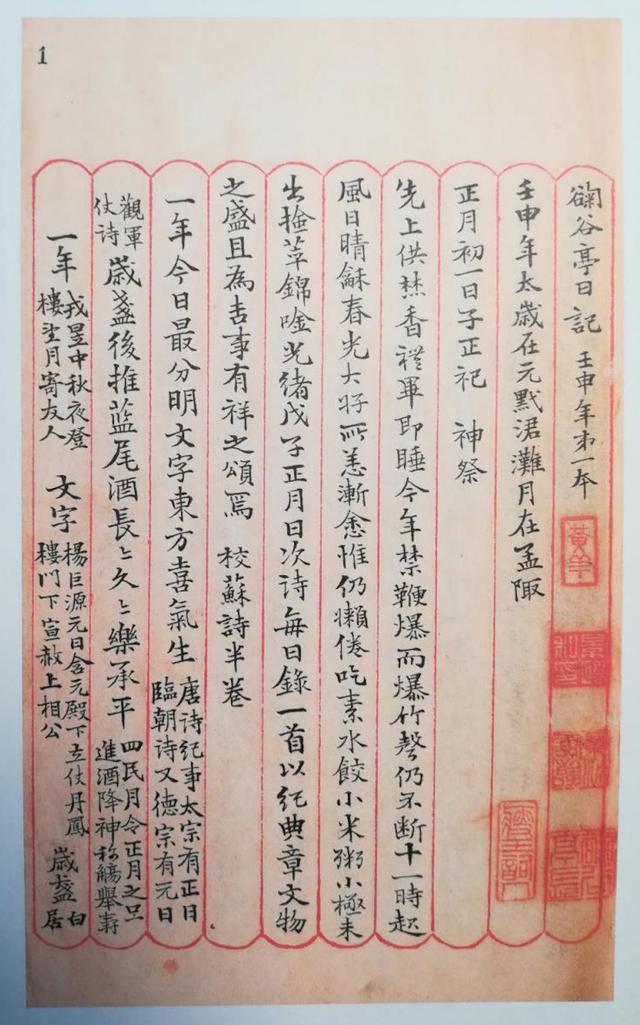 谷亭日記 壬申年第一本
黃羊
壬申年太歲在元黓涒灘月在孟陬
正月初一日子正祀 神祭
先上供焚香禮畢即睡今年禁鞭爆而爆竹聲仍不斷十一時起
風日晴龢春光大好所恙漸愈惟仍懶倦吃素水餃小米粥小極未
出撿萃錦唫光緒戊子正月日次詩每日錄一首以纪典章文物
之盛且為吉事有祥之頌焉 校蘇詩半卷
一年今日最分明文字東方喜氣生 唐诗纪事太宗有正日臨朝诗又德宗有元日
觀軍仗诗 歲盞後推蓝尾酒長〻久〻樂承平 四民月令正月之旦進酒降神称觴舉壽
一年 戎昱中秋夜登樓望月寄友人 文字 楊巨源元日含元殿下立仗丹鳳樓門下宣赦上相公 歲盞 白居
1